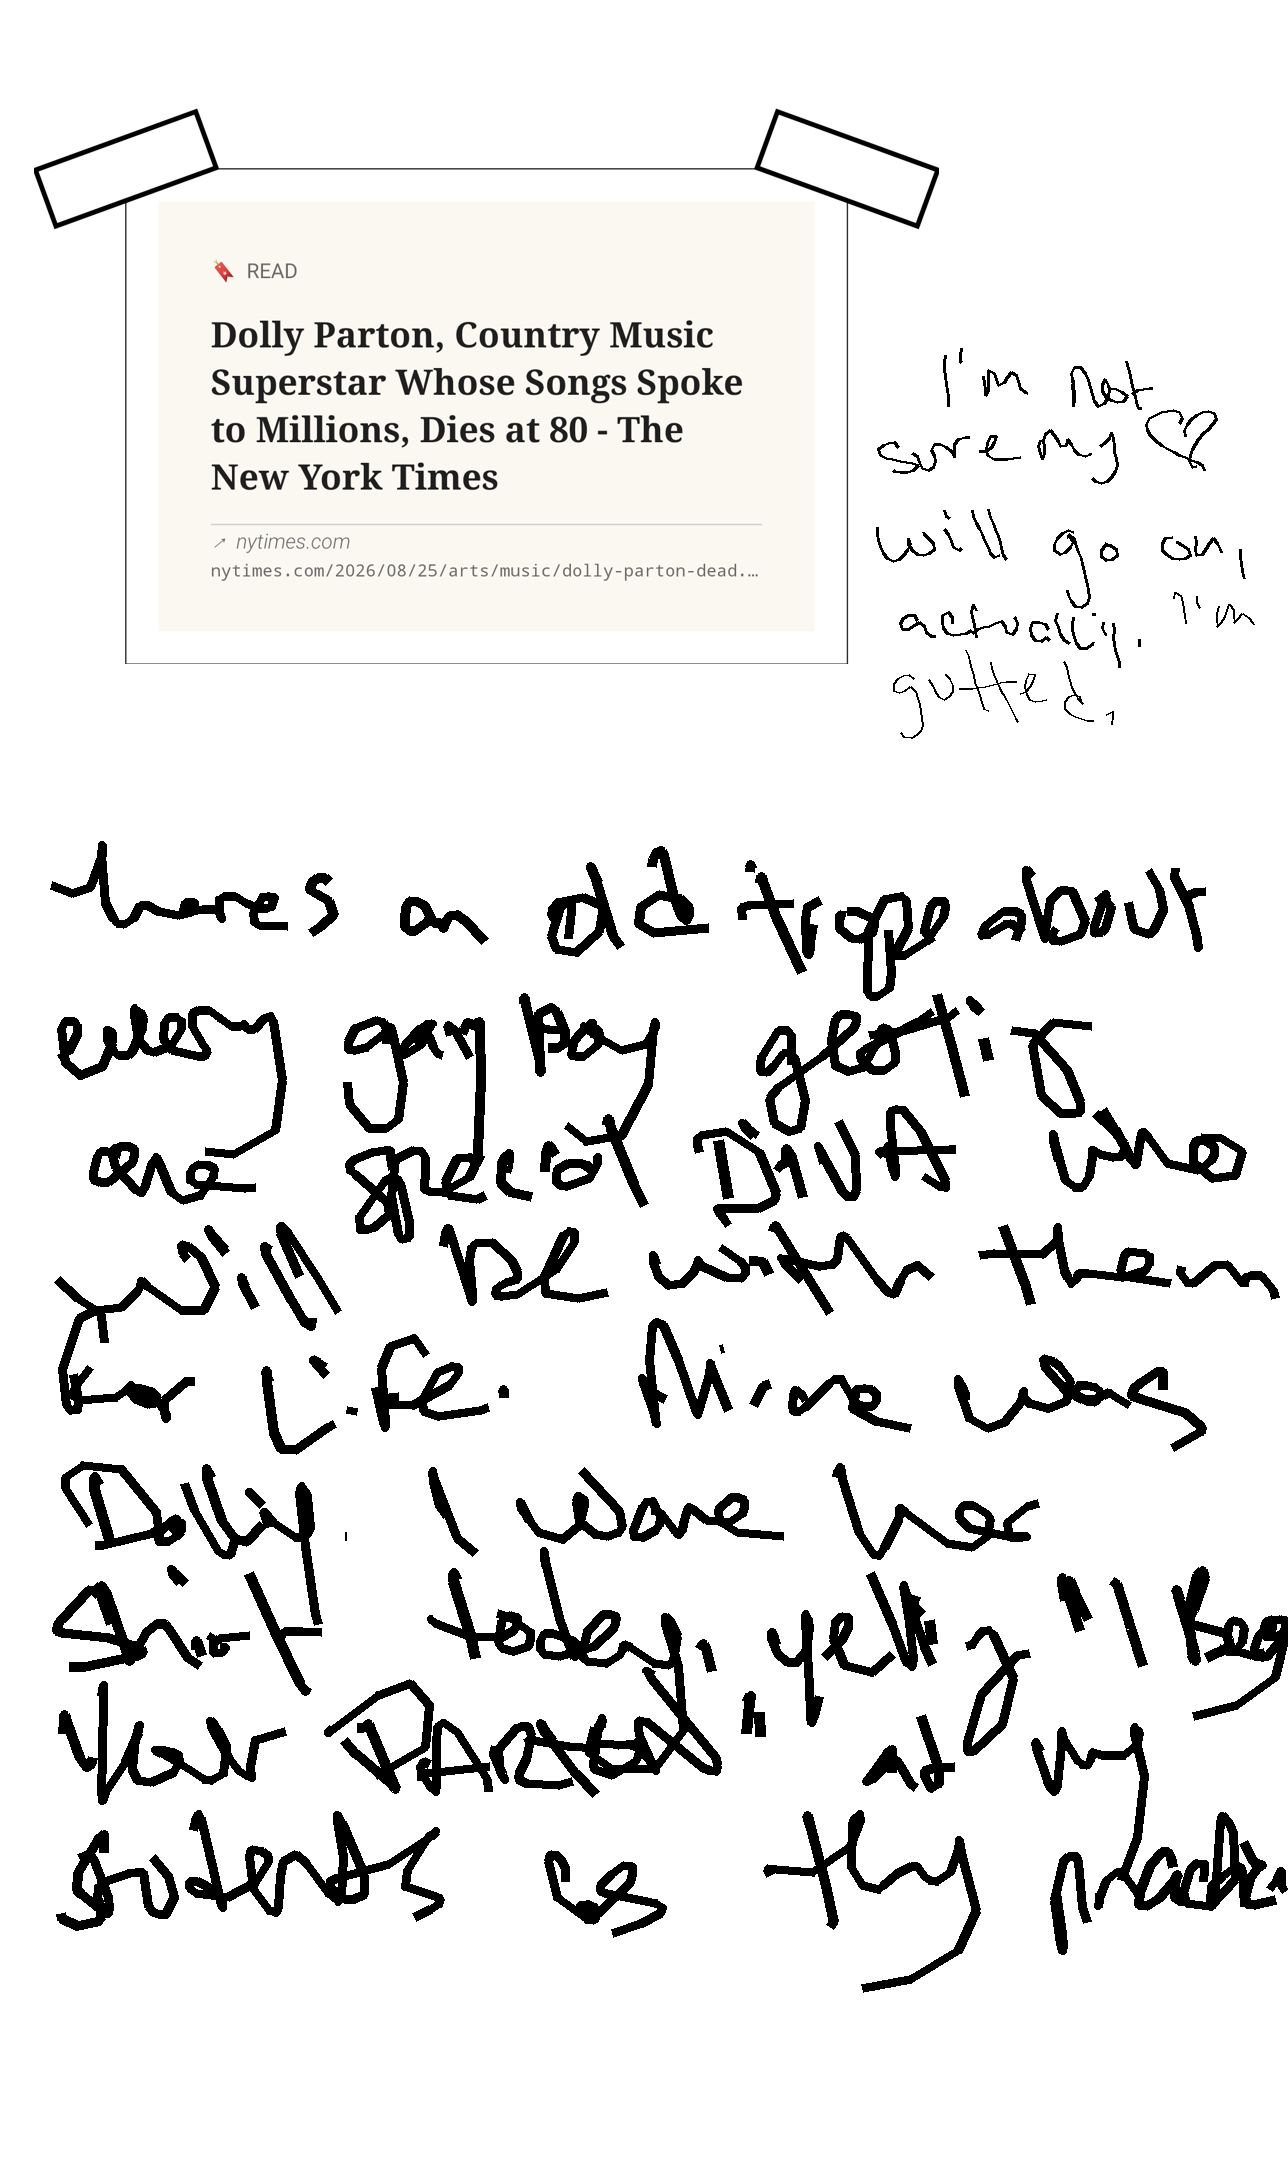 READ
Dolly Parton, Country Music
Superstar Whose Songs Spoke
to Millions, Dies at 80 - The
New York Times
↗ nytimes.com
nytimes.com/2026/08/25/arts/music/dolly-parton-dead.…
I'm not
sure my ♡
will go on,
actually. I'm
gutted.
there's an old trope about
every gay boy getting
one special DIVA who
will be with them
for Life. Mine was
Dolly. I wore her
shirt today, yelling "I Beg
Your PARTON" at my
students as they